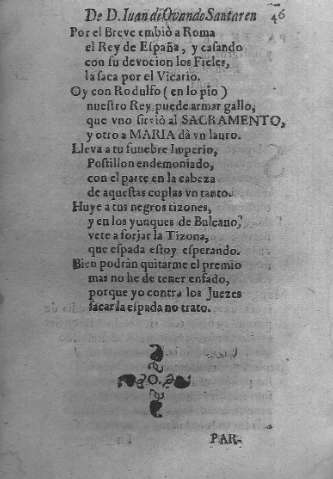 De D. Iuan di Ovando Santaren 46
Por el Breve embiò a Roma
el Rey de España, y casando
con su devocion los Fieles,
la saca por el Vicario.
Oy con Rodulfo (en lo pio)
nuestro Rey puede armar gallo,
que vno sirviò al SACRAMENTO,
y otro a MARIA dà vn lauro.
Lleva a tu funebre Imperio,
Postillon endemoniado,
con el parte en la cabeza
de aquestas coplas vn tanto.
Huye a tus negros tizones,
y en los yunques de Bulcano,
vete a forjar la Tizona,
que espada estoy esperando.
Bien podràn quitarme el premio
mas no he de tener enfado,
porque yo contra los Juezes
sacar la espada no trato.
PAR-